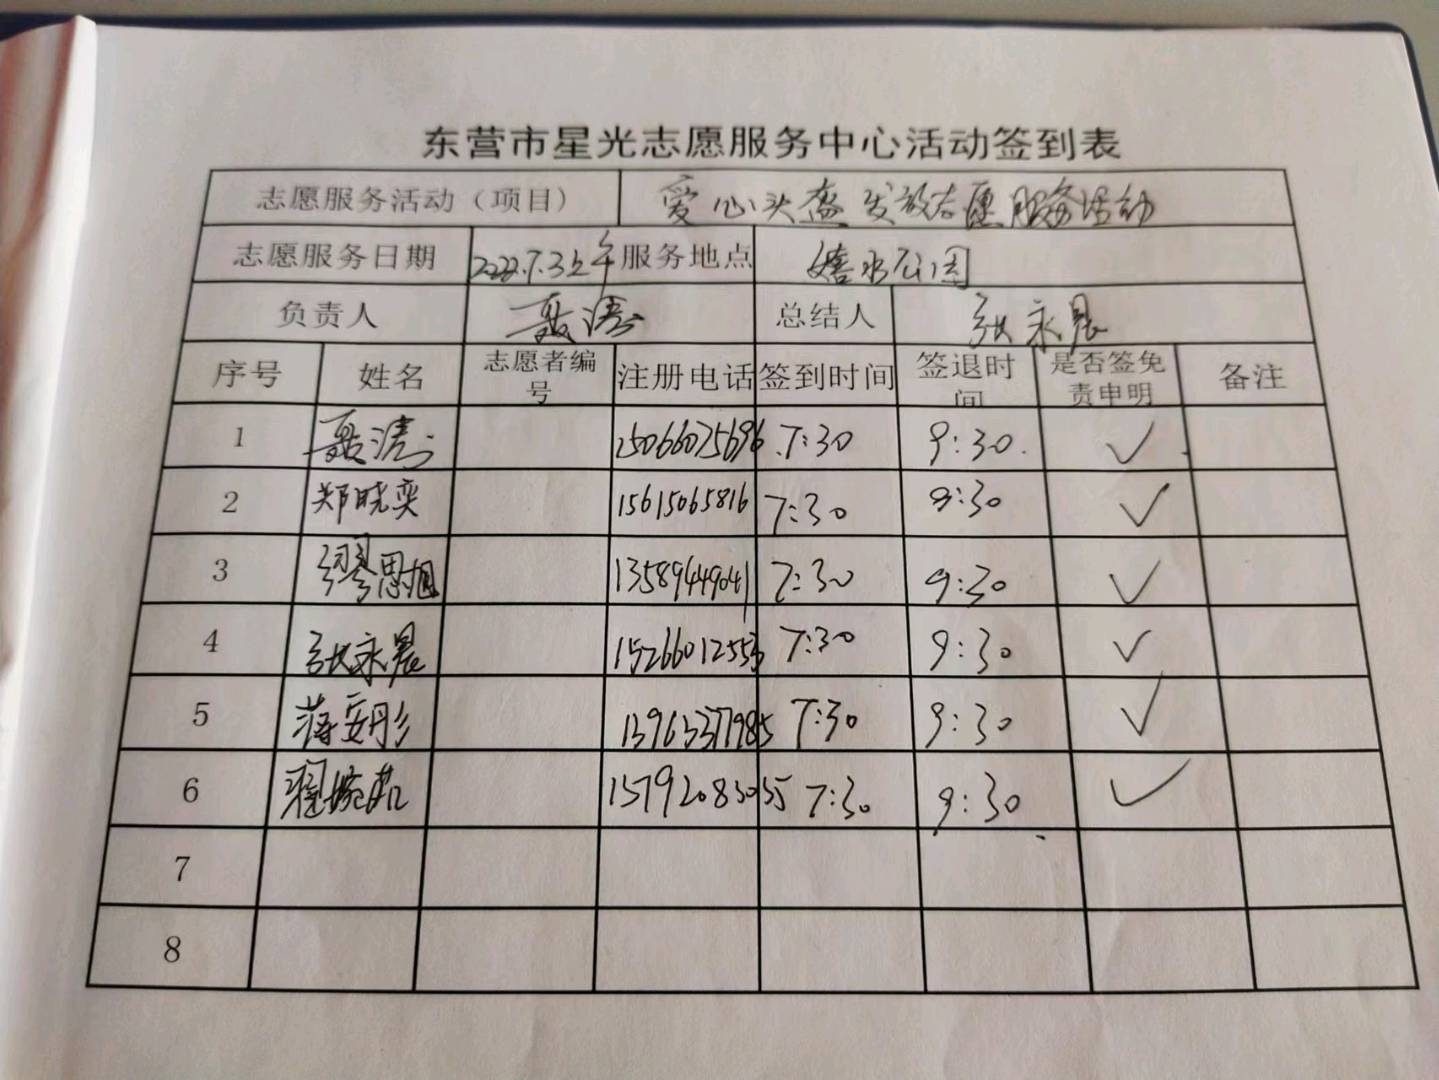 东营市星光志愿服务中心活动签到表
志愿服务活动（项目） 爱心头盔发放志愿服务活动
志愿服务日期 2022.7.3上午 服务地点 嬉水公园
负责人 聂涛 总结人 张永晨
序号 姓名 志愿者编号 注册电话 签到时间 签退时间 是否签免责申明 备注
1 聂涛 15066025696 7:30 9:30 ✓
2 郑晓奕 15615065816 7:30 9:30 ✓
3 缪思旭 13589449041 7:30 9:30 ✓
4 张永晨 15266012553 7:30 9:30 ✓
5 蒋安彤 13963377985 7:30 9:30 ✓
6 7:30 9:30 ✓
7
8